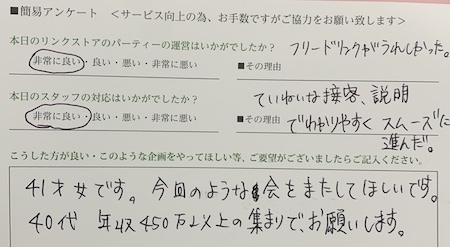 ■簡易アンケート ＜サービス向上の為、お手数ですがご協力をお願い致します＞
本日のリンクストアのパーティーの運営はいかがでしたか？ フリードリンクがうれしかった。
非常に良い・良い・悪い・非常に悪い ■その理由
本日のスタッフの対応はいかがでしたか？ ていねいな接客、説明
非常に良い・良い・悪い・非常に悪い ■その理由 でわかりやすく スムーズに
進んだ。
こうした方が良い・このような企画をやってほしい等、ご要望がございましたらご記入ください。
41才女です。今回のような会をまたしてほしいです。
40代 年収450万以上の集まりで、お願いします。